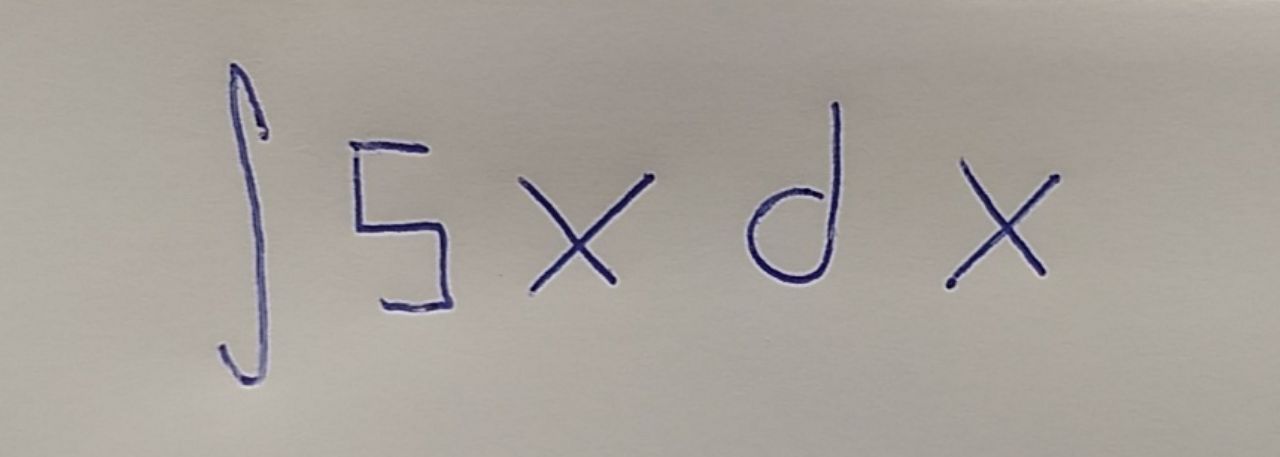 ∫ 5 x d x